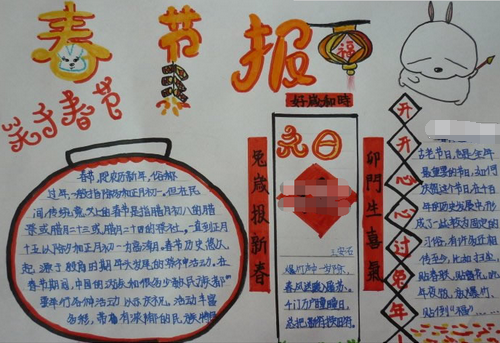 春节报
福
关于春节
春节,即农历新年,俗称
过年,一般指除夕和正月初一。但在民
间,传统意义上的春节是指腊月初八的腊
祭或腊月二十三或腊月二十四的祭灶,一直到正月
十五,以除夕和正月初一为高潮。春节历史悠久,
起源于殷商时期年头岁尾的祭神活动。在
春节期间,中国的汉族和很多少数民族都
要举行各种活动以庆祝。活动丰富
多彩,带有浓郁的民族特色
好歲如時
兔歲报新春
元日
王安石
爆竹声中一岁除,
春风送暖入屠苏。
千门万户曈曈日,
总把新桃换旧符。
卯門生喜氣
开开心心过兔年
古老节日,
最重要的节日,如何
庆贺这个节日,在千
年的历史发展中,形
成了一些较为固定的
习俗,有许多还相
传至今,比如扫尘,
贴春联,
年夜饭,放爆竹,
贴倒"福"……